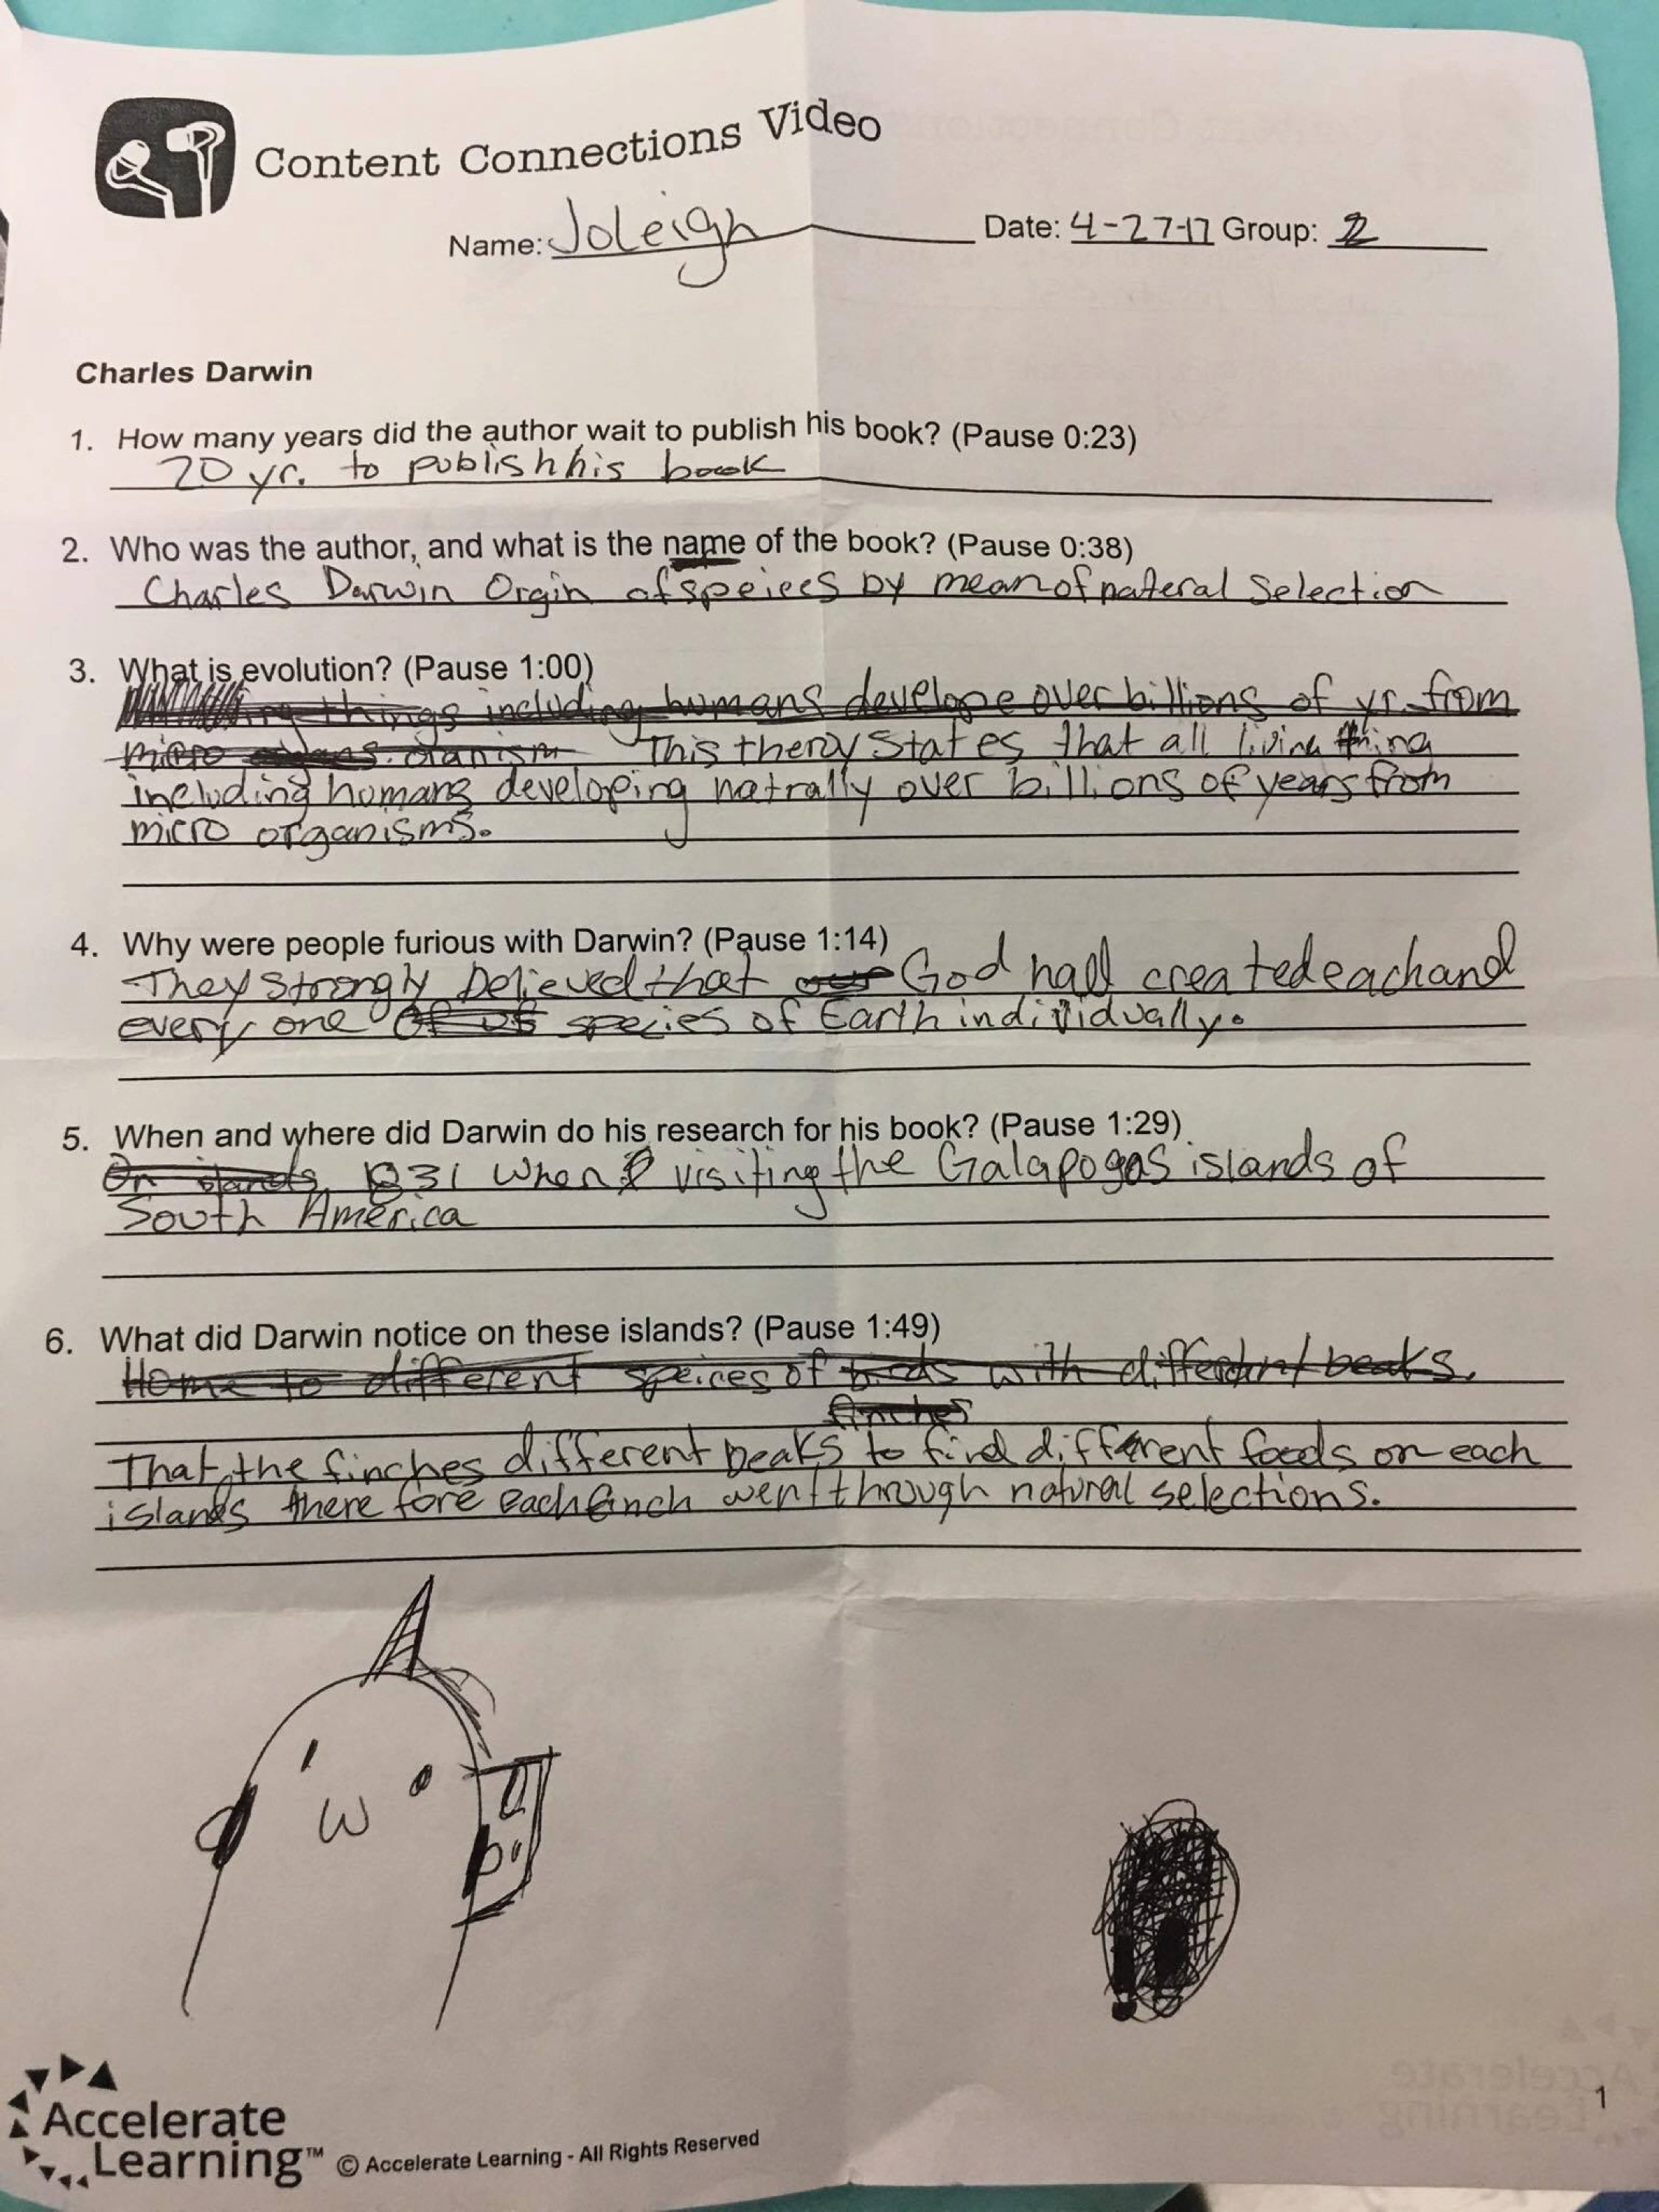 Content Connections Video
Name: Joleigh Date: 4-27-17 Group: 2
Charles Darwin
1. How many years did the author wait to publish his book? (Pause 0:23)
20 yr. to publish his book
2. Who was the author, and what is the name of the book? (Pause 0:38)
Charles Darwin Orgin of speices by mean of nateral Selection
3. What is evolution? (Pause 1:00)
things including humans develope over billions of yr. from
micro organism This theroy States that all living thing
including humans developing natrally over billions of years from
micro organisms.
4. Why were people furious with Darwin? (Pause 1:14)
They strongly believed that God had created each and
every one of us species of Earth individually.
5. When and where did Darwin do his research for his book? (Pause 1:29)
On islands 1831 when visiting the Galapogos islands of
South America
6. What did Darwin notice on these islands? (Pause 1:49)
Home to different speices of birds with different beaks.
finches
That the finches different beaks to find different foods on each
islands there fore each finch went through natural selections.
Accelerate
Learning™ © Accelerate Learning - All Rights Reserved
1